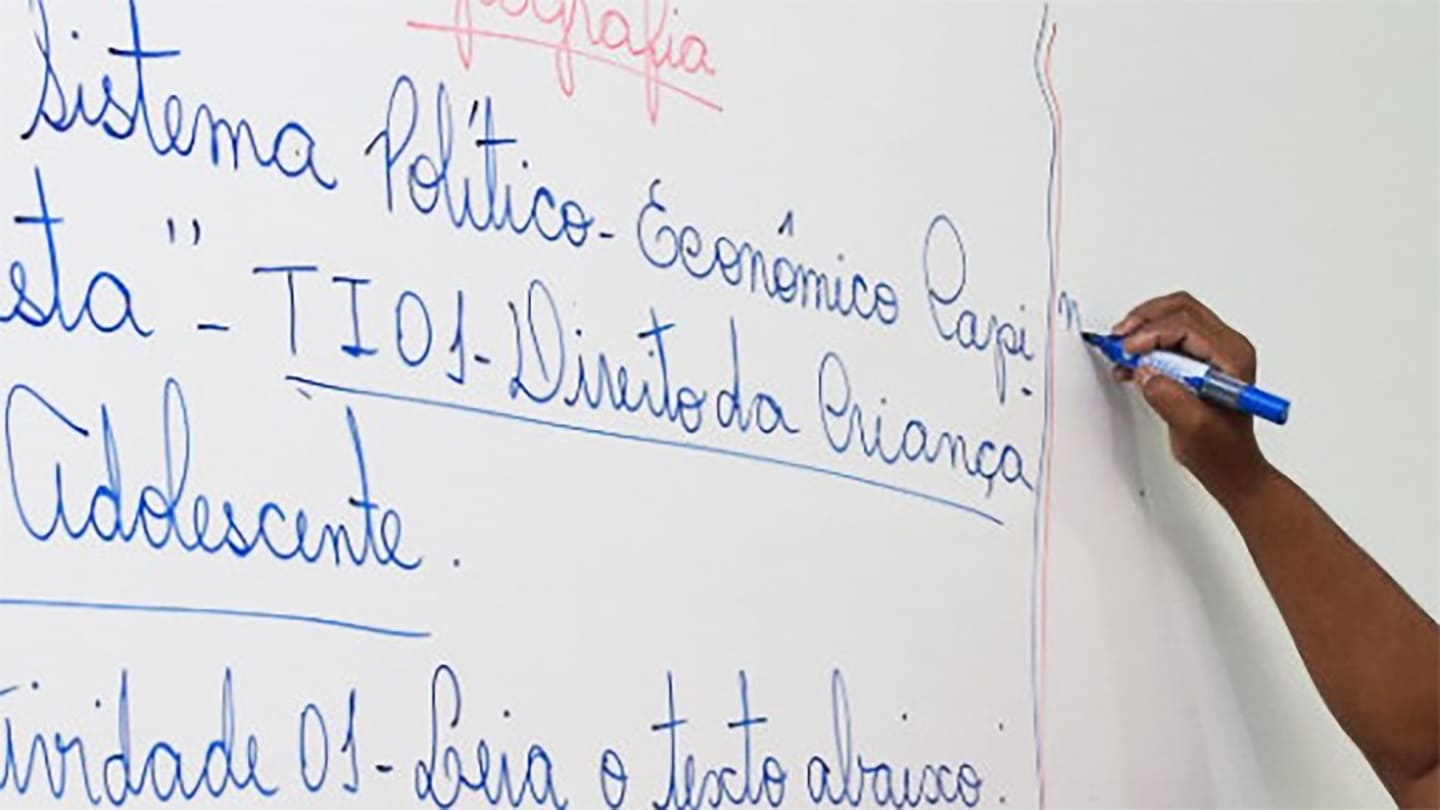 ografia
Sistema Político-Econômico Capi
sta" - TI01-Direito da Criança
Adolescente.
tividade 01-Leia o texto abaixo.